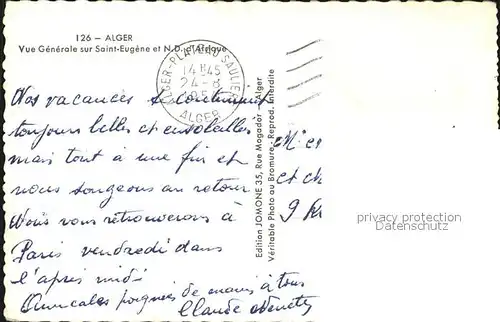 126 – ALGER
Vue Générale sur Saint-Eugène et N.D. d'Afrique
ALGER-PLATEAU SAULIERE
14H45
24-8
195
ALGER
Nos vacances se continuent
toujours belles et ensoleillées
mais tout à une fin et
nous songeons au retour
Nous vous retrouverons à
Paris vendredi dans
l'après midi
Amicales poignées de mains à tous
Claude
Edition JOMONE 35, Rue Mogador - Alger
Véritable Photo au Bromure - Reprod. Interdite
et
9
privacy protection
Datenschutz